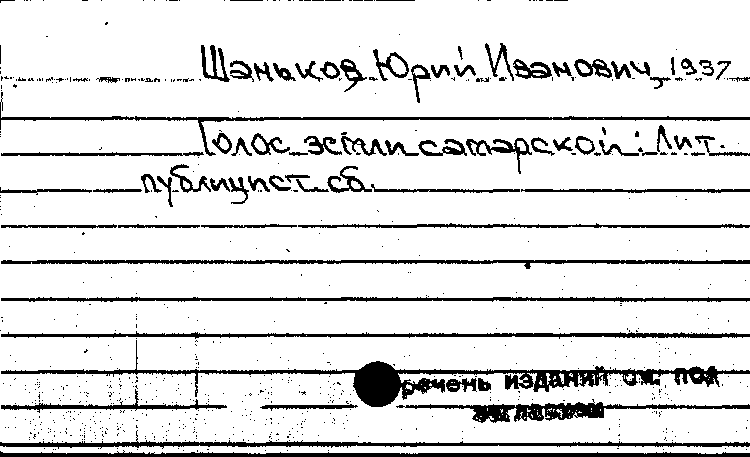 Шаньков Юрий Иванович, 1937
Голос земли самарской : Лит.
публицист. сб.
речень изданий см. под
заглавием